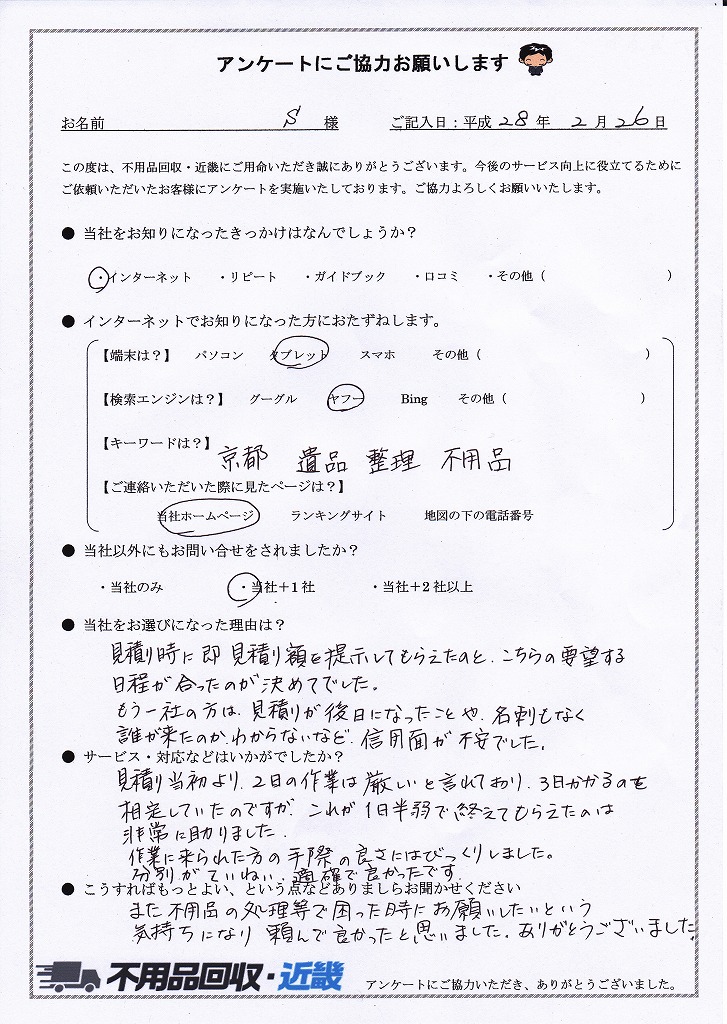 アンケートにご協力お願いします
お名前 S 様 ご記入日：平成 28 年 2 月 26 日
この度は、不用品回収・近畿にご用命いただき誠にありがとうございます。今後のサービス向上に役立てるために
ご依頼いただいたお客様にアンケートを実施いたしております。ご協力よろしくお願いいたします。
● 当社をお知りになったきっかけはなんでしょうか？
・インターネット ・リピート ・ガイドブック ・口コミ ・その他（ ）
● インターネットでお知りになった方におたずねします。
【端末は？】 パソコン タブレット スマホ その他（ ）
【検索エンジンは？】 グーグル ヤフー Bing その他（ ）
【キーワードは？】 京都 遺品 整理 不用品
【ご連絡いただいた際に見たページは？】
当社ホームページ ランキングサイト 地図の下の電話番号
● 当社以外にもお問い合せをされましたか？
・当社のみ ・当社＋1社 ・当社＋2社以上
● 当社をお選びになった理由は？
見積り時に即見積り額を提示してもらえたのと、こちらの要望する
日程が合ったのが決めてでした。
もう一社の方は、見積りが後日になったことや、名刺もなく
誰が来たのか、わからないなど、信用面が不安でした。
● サービス・対応などはいかがでしたか？
見積り当初より、2日の作業は厳しいと言われており、3日かかるのを
相定していたのですが、これが1日半弱で終えてもらえたのは
非常に助りました。
作業に来られた方の手際の良さにはびっくりしました。
分別がていねい、適確で良かったです。
● こうすればもっとよい、という点などありましらお聞かせください
また不用品の処理等で困った時にお願いしたいという
気持ちになり 頼んで良かったと思いました。ありがとうございました。
不用品回収・近畿 アンケートにご協力いただき、ありがとうございました。